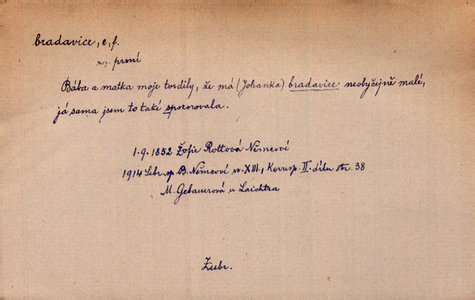 bradavice, e, f.
první
Bába a matka moje tvrdily, že má (Johanka) bradavice neobyčejně malé,
já sama jsem to také spozorovala.
1.9. 1852 Žofie Rottová Němcové
1914 Sebr. sp. B. Němcové sv. XIII, Koresp. II. dílu str. 38
M. Gebauerová u Laichtra
Zubr.